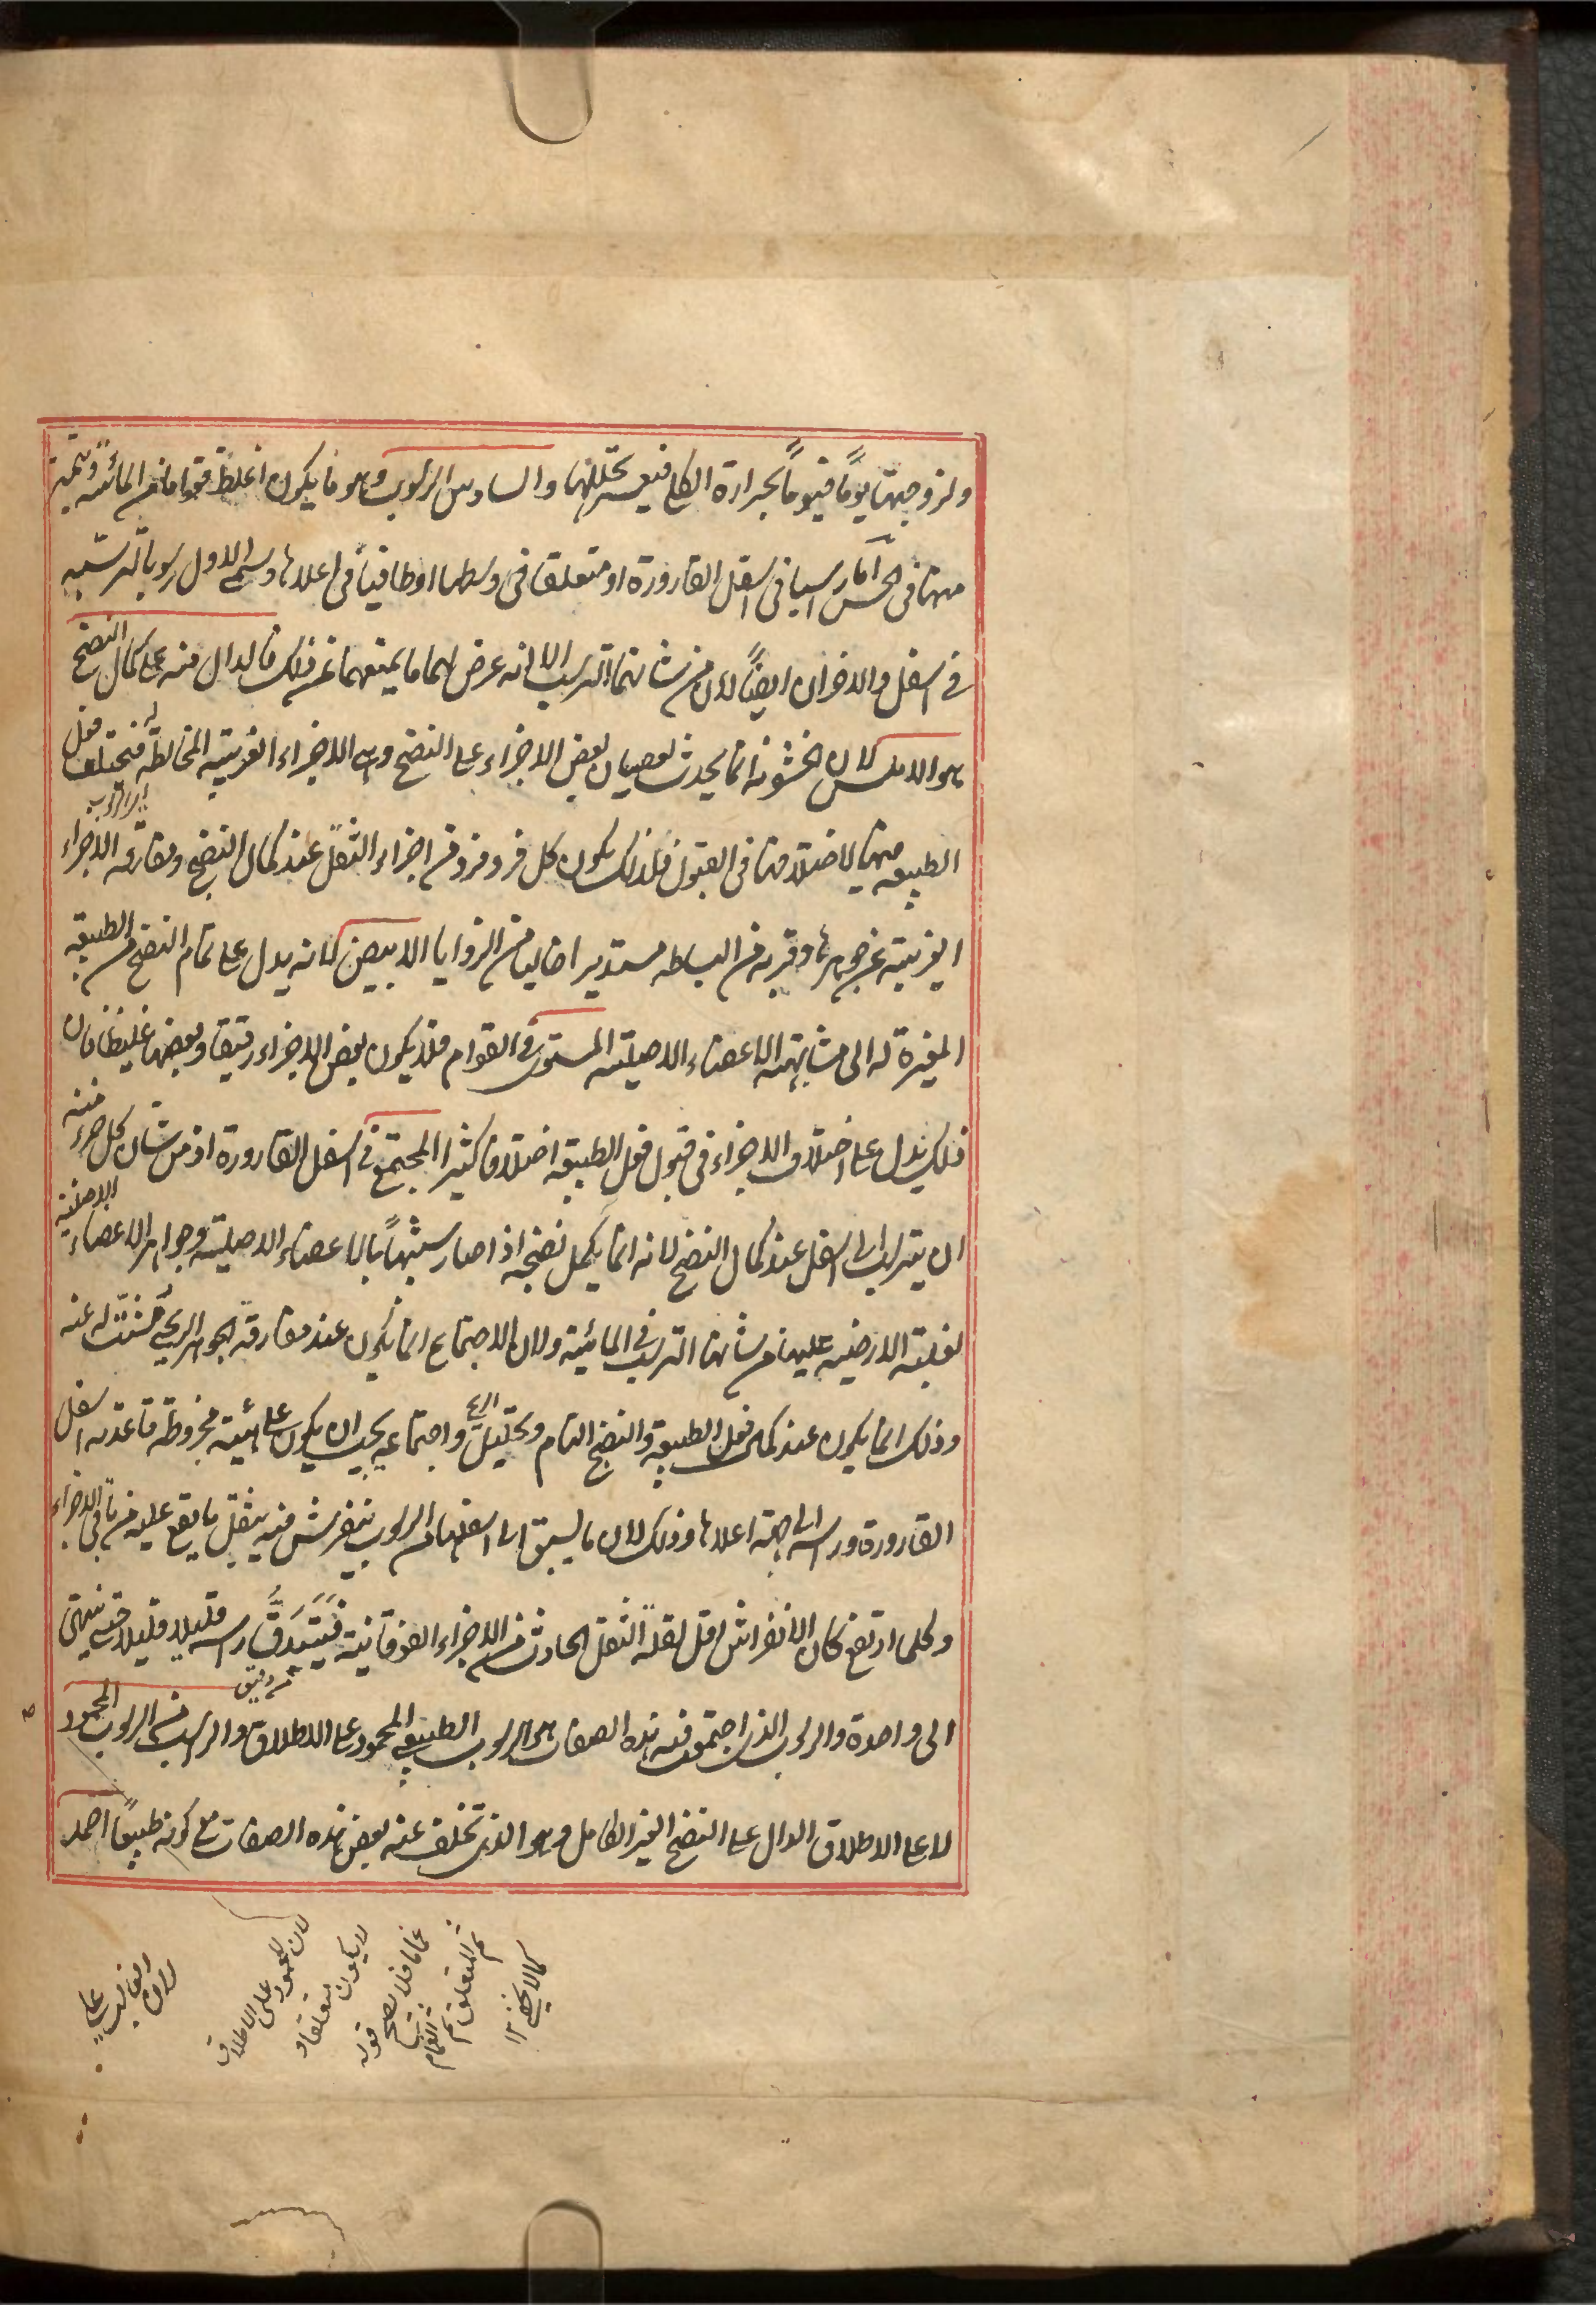 ولزوجتها يوما فيوما بحرارة الكلى فيعسر تحللها والسادس الرسوب وهو ما يكون اغلظ قواما من المائية ويتميز
منها فى الحس اما راسيا فى اسفل القارورة او متعلقا فى وسطها او طافيا فى اعلاها وسمى الاول رسوبا لترسبه
فى اسفل والاخران ايضا لان من شانهما الترسب الا انه عرض لهما ما يمنعهما عن ذلك فالدال منه على كمال النضج
هو الاملس لان الخشونة انما يحدث لعصيان بعض الاجزاء على النضج وهى الاجزاء الغريبة المخالطة له فيختلف فعل
الطبيعة فيها لاختلافها فى القبول فلذلك يكون كل فرد فرد من اجزاء الثفل عند كمال النضج ومفارقة الاجزاء
الغريبة عن جوهرها وقربه من البساطة مستديرا خاليا من الزوايا الابيض لانه يدل على تمام النضج من الطبيعة
المغيرة له الى مشابهة الاعضاء الاصلية المستوى فى القوام فلا يكون بعض الاجزاء رقيقا وبعضها غليظا فان
ذلك يدل على اختلاف الاجزاء فى قبول فعل الطبيعة اختلافا كثيرا المجتمع فى اسفل القارورة اذ من شان كل جزء منه
ان يترسب الى اسفل عند كمال النضج لانه انما يكمل نضجه اذا صار شبيها بالاعضاء الاصلية وجواهر الاعضاء الاصلية
لغلبة الارضية عليها من شانها الترسب فى المائية ولان الاجتماع انما يكون عند مفارقة الجوهر الريحى المشتت له عنه
وذلك انما يكون عند كمال فعل الطبيعة والنضج التام وتحليل الريح واجتماعه يجب ان يكون على هيئة مخروطة قاعدته اسفل
القارورة وراسه الى جهة اعلاها وذلك لان ما يسبق الى اسفلها من الرسوب ينفرش فيه بثقل ما يقع عليه من باقى الاجزاء
وكلما ارتفع كان الانفراش اقل لقلة الثقل الحادث من الاجزاء الفوقانية فيتدق راسه قليلا قليلا حتى ينتهى
الى واحدة والرسوب الذى اجتمعت فيه هذه الصفات هو الرسوب الطبيعى المحمود على الاطلاق والراسب من الرسوب المحمود
لا على الاطلاق الدال على النضج الغير الكامل وهو الذى تخلف عنه بعض هذه الصفات مع كونه طبيعيا احمد
لان المحمود
على الاطلاق
لا يكون متعلقا و
غماما فلا يصح قوله
ثم المتعلق ثم الغمام
كما لا يخفى ١٢